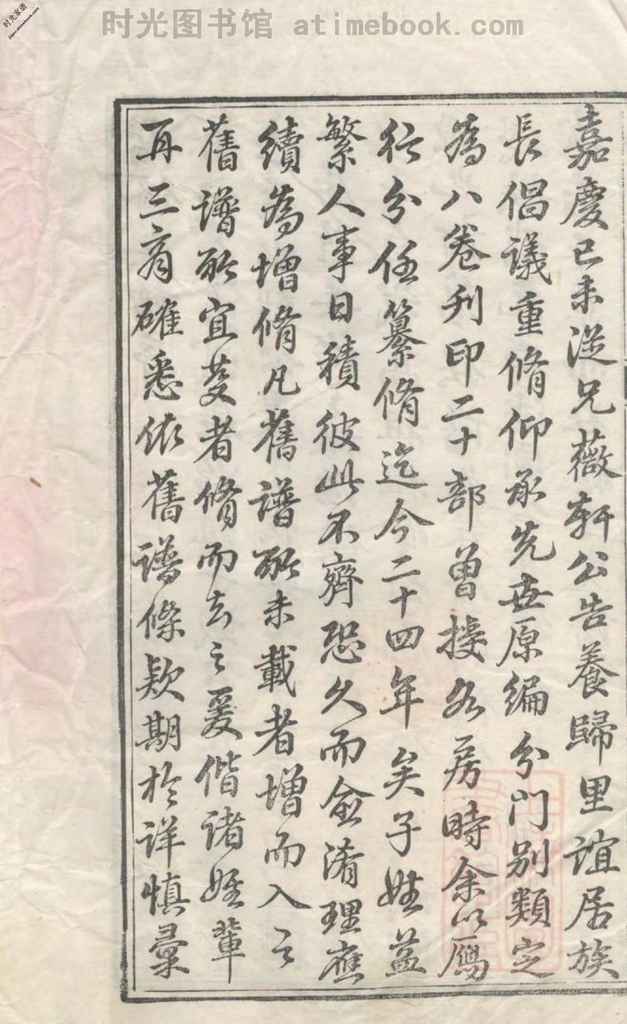 时光图书馆 atimebook.com
嘉慶己未從兄薇軒公告養歸里誼居族
長倡議重脩仰承先世原編分門別類定
為八卷刊印二十部曾授各房時余以鴈
行分任纂脩迄今二十四年矣子姓益
繁人事日積彼此不齊恐久而愈淆理應
續為增脩凡舊譜所未載者增而入之
舊譜所宜芟者脩而去之爰偕諸姪輩
再三商確悉依舊譜條款期於詳慎彙